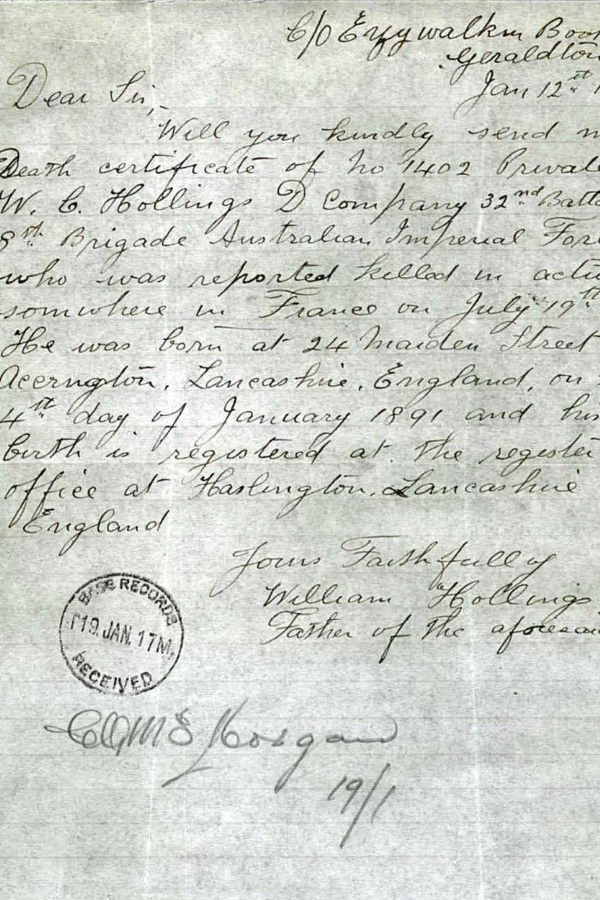 C/O Ezywalkin Boo
Geraldton
Jan 12th 1
Dear Sir,-
Will you kindly send m
Death certificate of No 1402 Private
W. C. Hollings D Company 32nd Batta
8th Brigade Australian Imperial For
who was reported killed in acti
somewhere in France on July 19th
He was born at 24 Maiden Street
Accrngton, Lancashire, England, on
4th day of January 1891 and his
birth is registered at the register
office at Haslington, Lancashire
England
Yours Faithfully
William Hollings
Father of the aforesai
BASE RECORDS
19 JAN. 17
RECEIVED
19/1